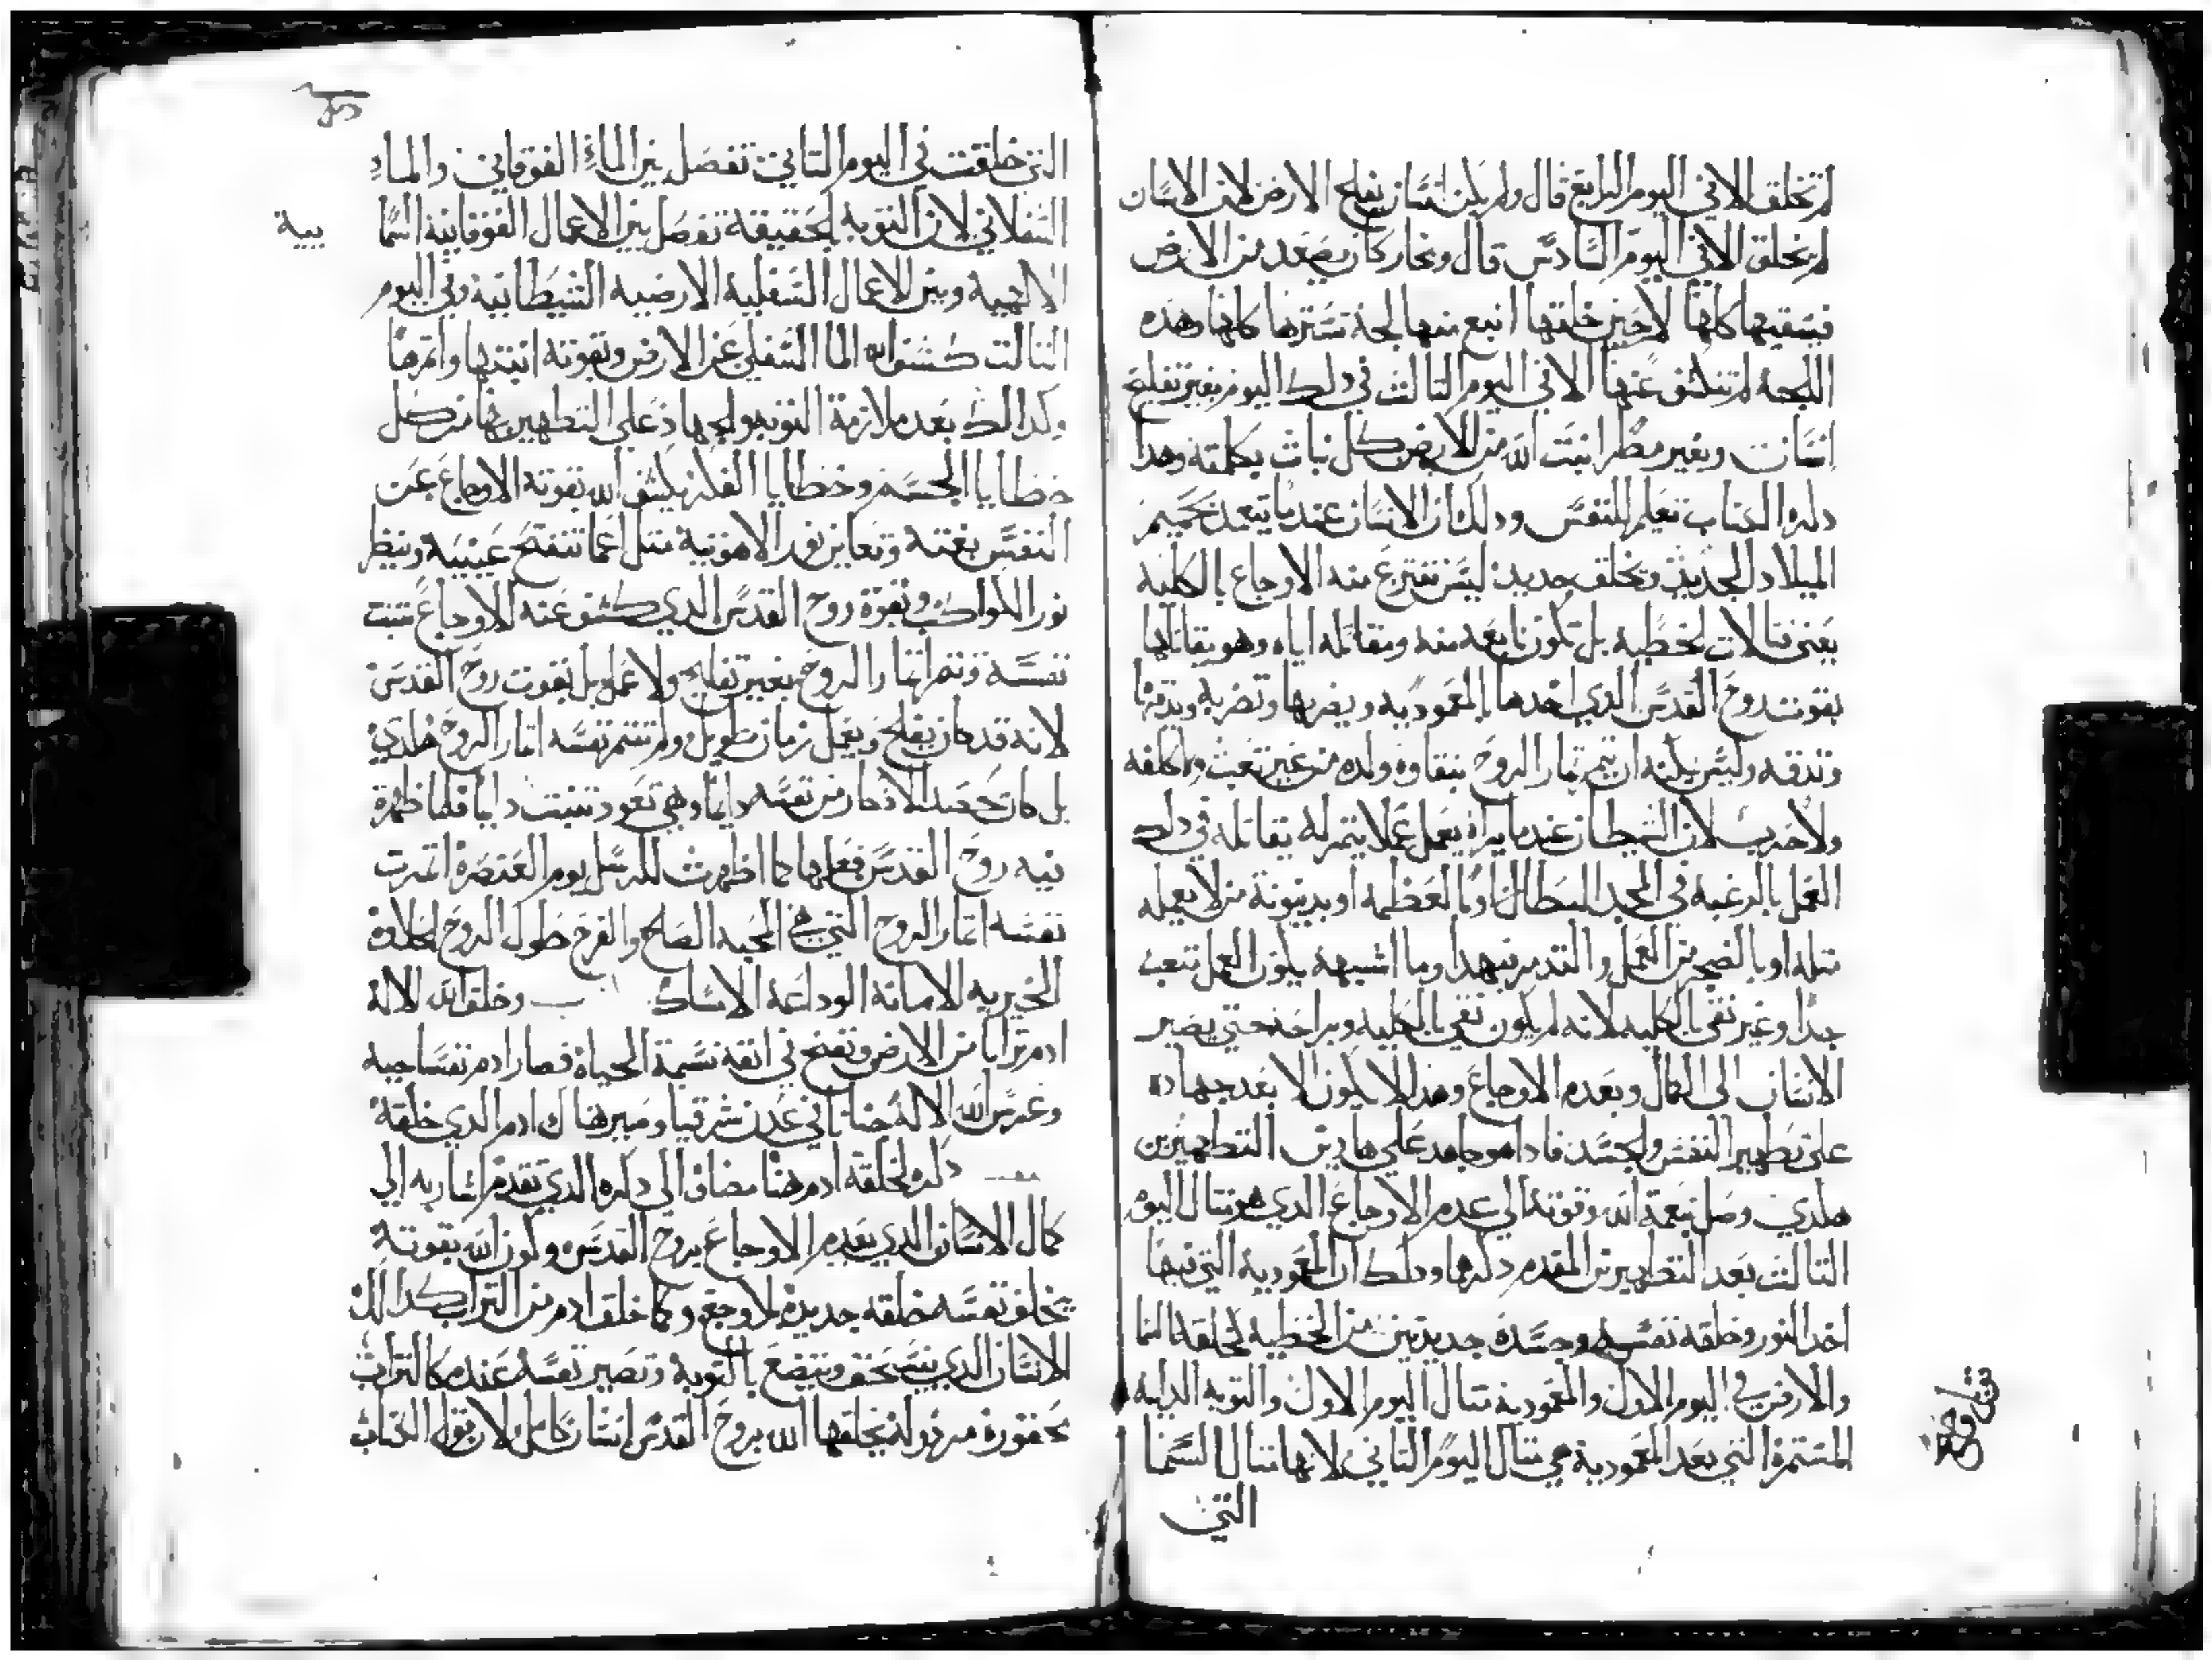 لم تخلق الا في اليوم الرابع قال ولم يكن انسان يفلح الارض لان الانسان
لم يخلق الا في اليوم السادس قال وبخار كان يصعد من الارض
فيسقيها كلها لاحين خلقها انبع منها لجة تسترها كلها وهذه
اللجه لم تنكشف عنها الا في اليوم التالت في دلك اليوم بغير تفليح
انسان وبغير مطر انبت الله من الارض كل نبات بكلمته وهدا
دكره الكتاب تعليم للنفس ودلك ان الانسان عندما يتعمد بحميم
الميلاد الجديد ويخلق جديد ليس تنتزع منه الاوجاع بالكلية
بعني فتالات الخطيه بل تكون تابعه منه ومقاتله اياه وهو يقاتلها
بقوت روح القدس الدي اخدها بالمعموديه ويضربها وتضربه ويدقها
وتدقه وليس يمكنه ان يتم تمار الروح بنقاوه ولده من غير تعب ولا كلفه
ولا حرب لان الشيطان عندما يراه يعمل عملا يتم له يقاتله في دلك
العمل بالرغبه في المجد البطال او بالعظمه او بدينونة من لا يعمله
متله او بالضجر من العمل والتدمر فبهدا وما اشبهه يكون العمل بتعب
جدا وغير نقي بالكليه لانه لم يكون نقي بالكليه ومراحه حتي يصير
الانسان الى الكمال وبعدم الاوجاع وهدا لا يكون الا بعد جهاده
على تطهير النفس والجسد فادا هو جاهد علي هادين التطهيرين
هكدي وصل بنعمة الله وقوته الي عدم الاوجاع الدي هو متال اليوم
التالت بعد التطهيرين المقدم دكرها ودلك ان المعمودية التي فيها
اخد النور وخلقه نفسه وجسده جديدين من الخطيه كخلقة السما
والارض في اليوم الاول والمعمودية متال اليوم الاول والتوبه الدايمه
المستمرة التي بعد المعمودية هي متال اليوم التاني لانها متال السما
التي
التي خلقت في اليوم التاني تفصل بين الماء الفوقاني والماء
السفلاني لان التوبه الحقيقة تفصل بين الاعمال الفوقانية السما
ييه
الالهيه وبين الاعمال السفلية الارضيه الشيطانية وفي اليوم
التالت كشف الله الما السفلي عن الارض وبقوته انبتها واتمرها
وكدالك بعد ملازمة التوبه والجهاد على التطهير بها من كل
خطايا الجسم وخطايا الفكر يكشف الله بقوته الاوجاع عن
النفس بغتة وتعاين نور الاهوتية متل اعما تنفتح عينيه وينظر
نور الكواكب وبقوة روح القدس الدي كشف عنه الاوجاع تنبت
نفسه وتتم اتمار الروح بغير تفليح ولا عمل بل بقوت روح القدس
لانه قد كان يفلح ويعمل زمان طويل ولم تتم نفسه اتمار الروح هكدي
بل كان تحصد الافكار من نفسه دايما وهي تعود تنبت دايما فلما ظهرة
فيه روح القدس فعلها كما اظهرت للرسل يوم العنصرة اتمرت
نفسه اتمار الروح التي هي المحبه الصلح والفرح طول الروح الحلاوة
الخيريه الامانة الوداعة الامساك وخلق الله الاله
ادم ترابا من الارض ونفخ في انفه نسمة الحياة فصار ادم نفسا حيه
وغرس الله الاله جنانا في عدن شرقيا وصير هناك ادم الدي خلقة
دكره لخلقة ادم هنا مضاف الى دكره الدي تقدم اشار به الي
كمال الانسان الدي بعدم الاوجاع بروح القدس وكون الله بقوته
يخلق نفسه خلقه جديدة بلا وجع وكما خلق ادم من التراب كدالك
الانسان الدي ينسحق ويتضع بالتوبه وتصير نفسه عنده كالتراب
محقورة مردوله يخلقها الله بروح القدس انسان كامل لان قول الكتاب